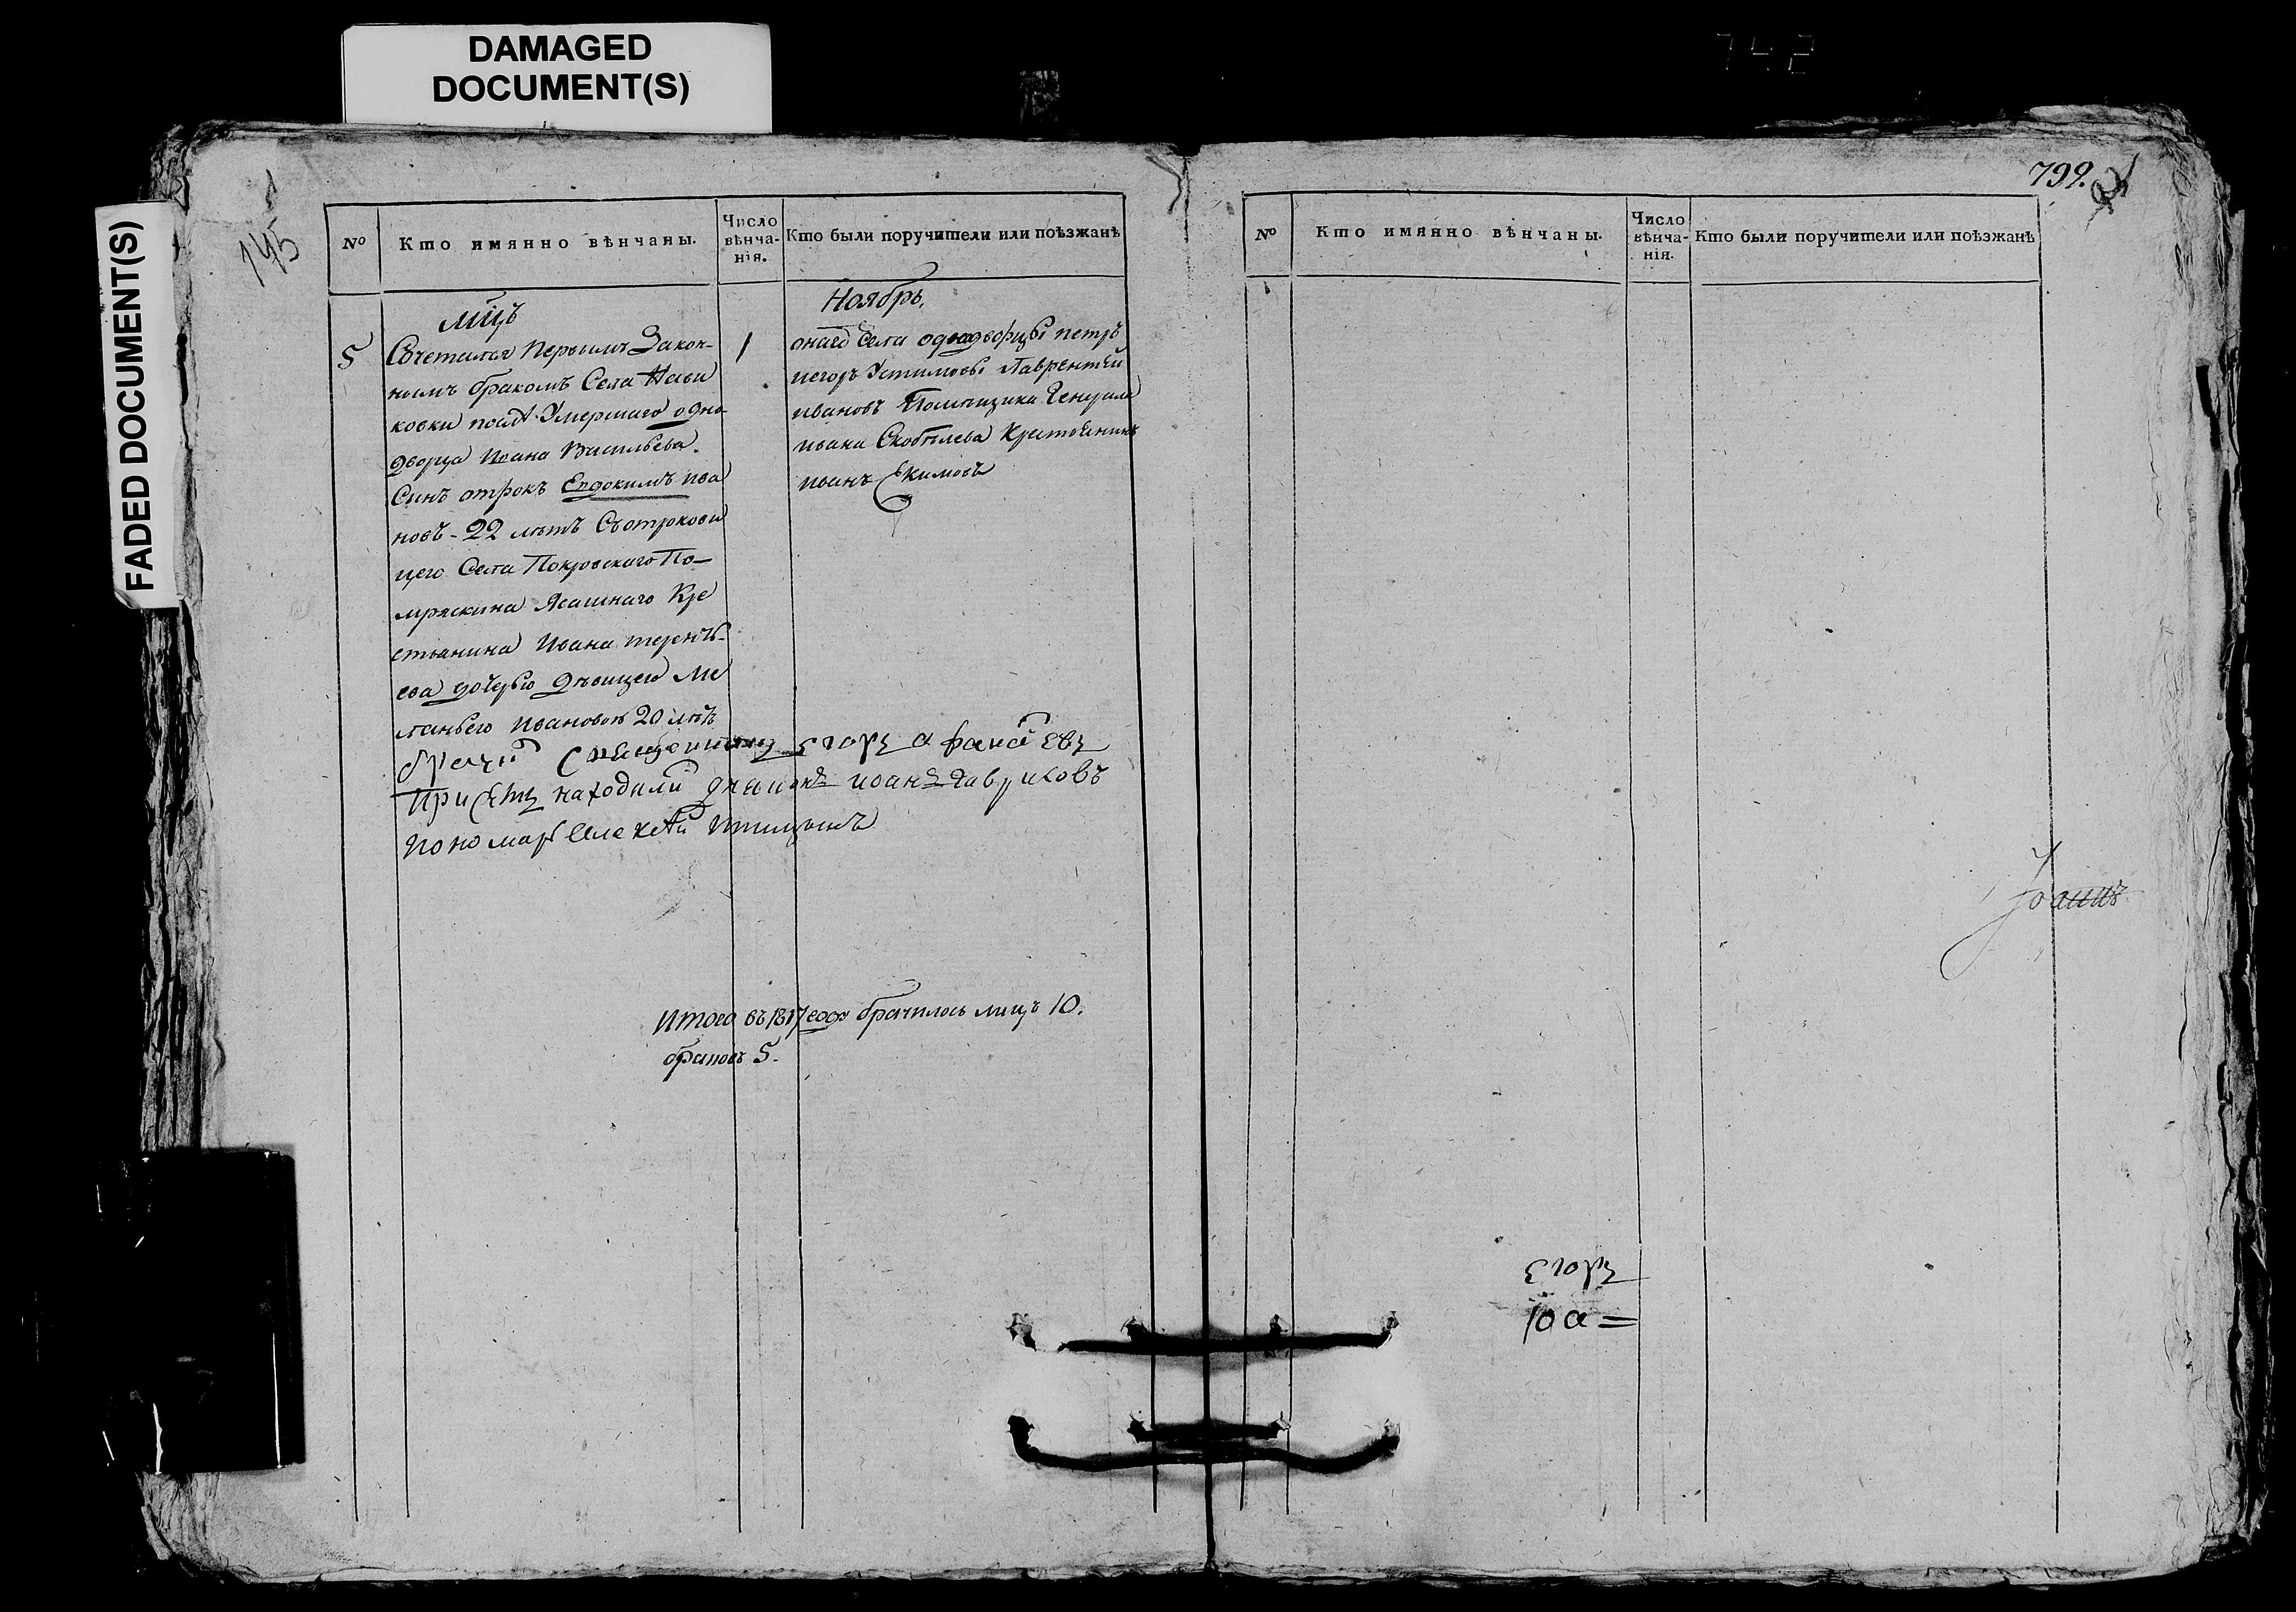 DAMAGED
DOCUMENT(S)
FADED DOCUMENT(S)
742
145
799.
№
Кто имянно вѣнчаны.
Число
вѣнча-
нія.
Кто были поручители или поѣзжанѣ
Мцъ
5
Сочетался первымъ закон-
нымъ бракомъ Села
ковки умершаго одно-
дворца Ивана Васильева
Сынъ отрокъ Евдокимъ ива
новъ - 22 лѣтъ Сотрокови
цею Села Покровскаго По-
мряскина Ясашнаго Кре
стьянина Ивана терентъ-
ева дочерью дѣвицею Ме
ланьею Ивановою 20 лѣтъ
1
Ноябрь.
онаго села однодворцы петръ
иегоръ Устимовы Лаврентей
ивановъ Помѣщика Генерала
ивана Скобелева Крестьянинъ
иванъ Екимовъ
Священникъ егоръ афанасевъ
При семъ находили дьячокъ иоанъ Гавриловъ
Пономарь Алексей Птицынъ
Итого въ 1817 годѣ брачилось лицъ 10.
браковъ 5.
№
Кто имянно вѣнчаны.
Число
вѣнча-
нія.
Кто были поручители или поѣзжанѣ
Іоаннъ
Егоръ